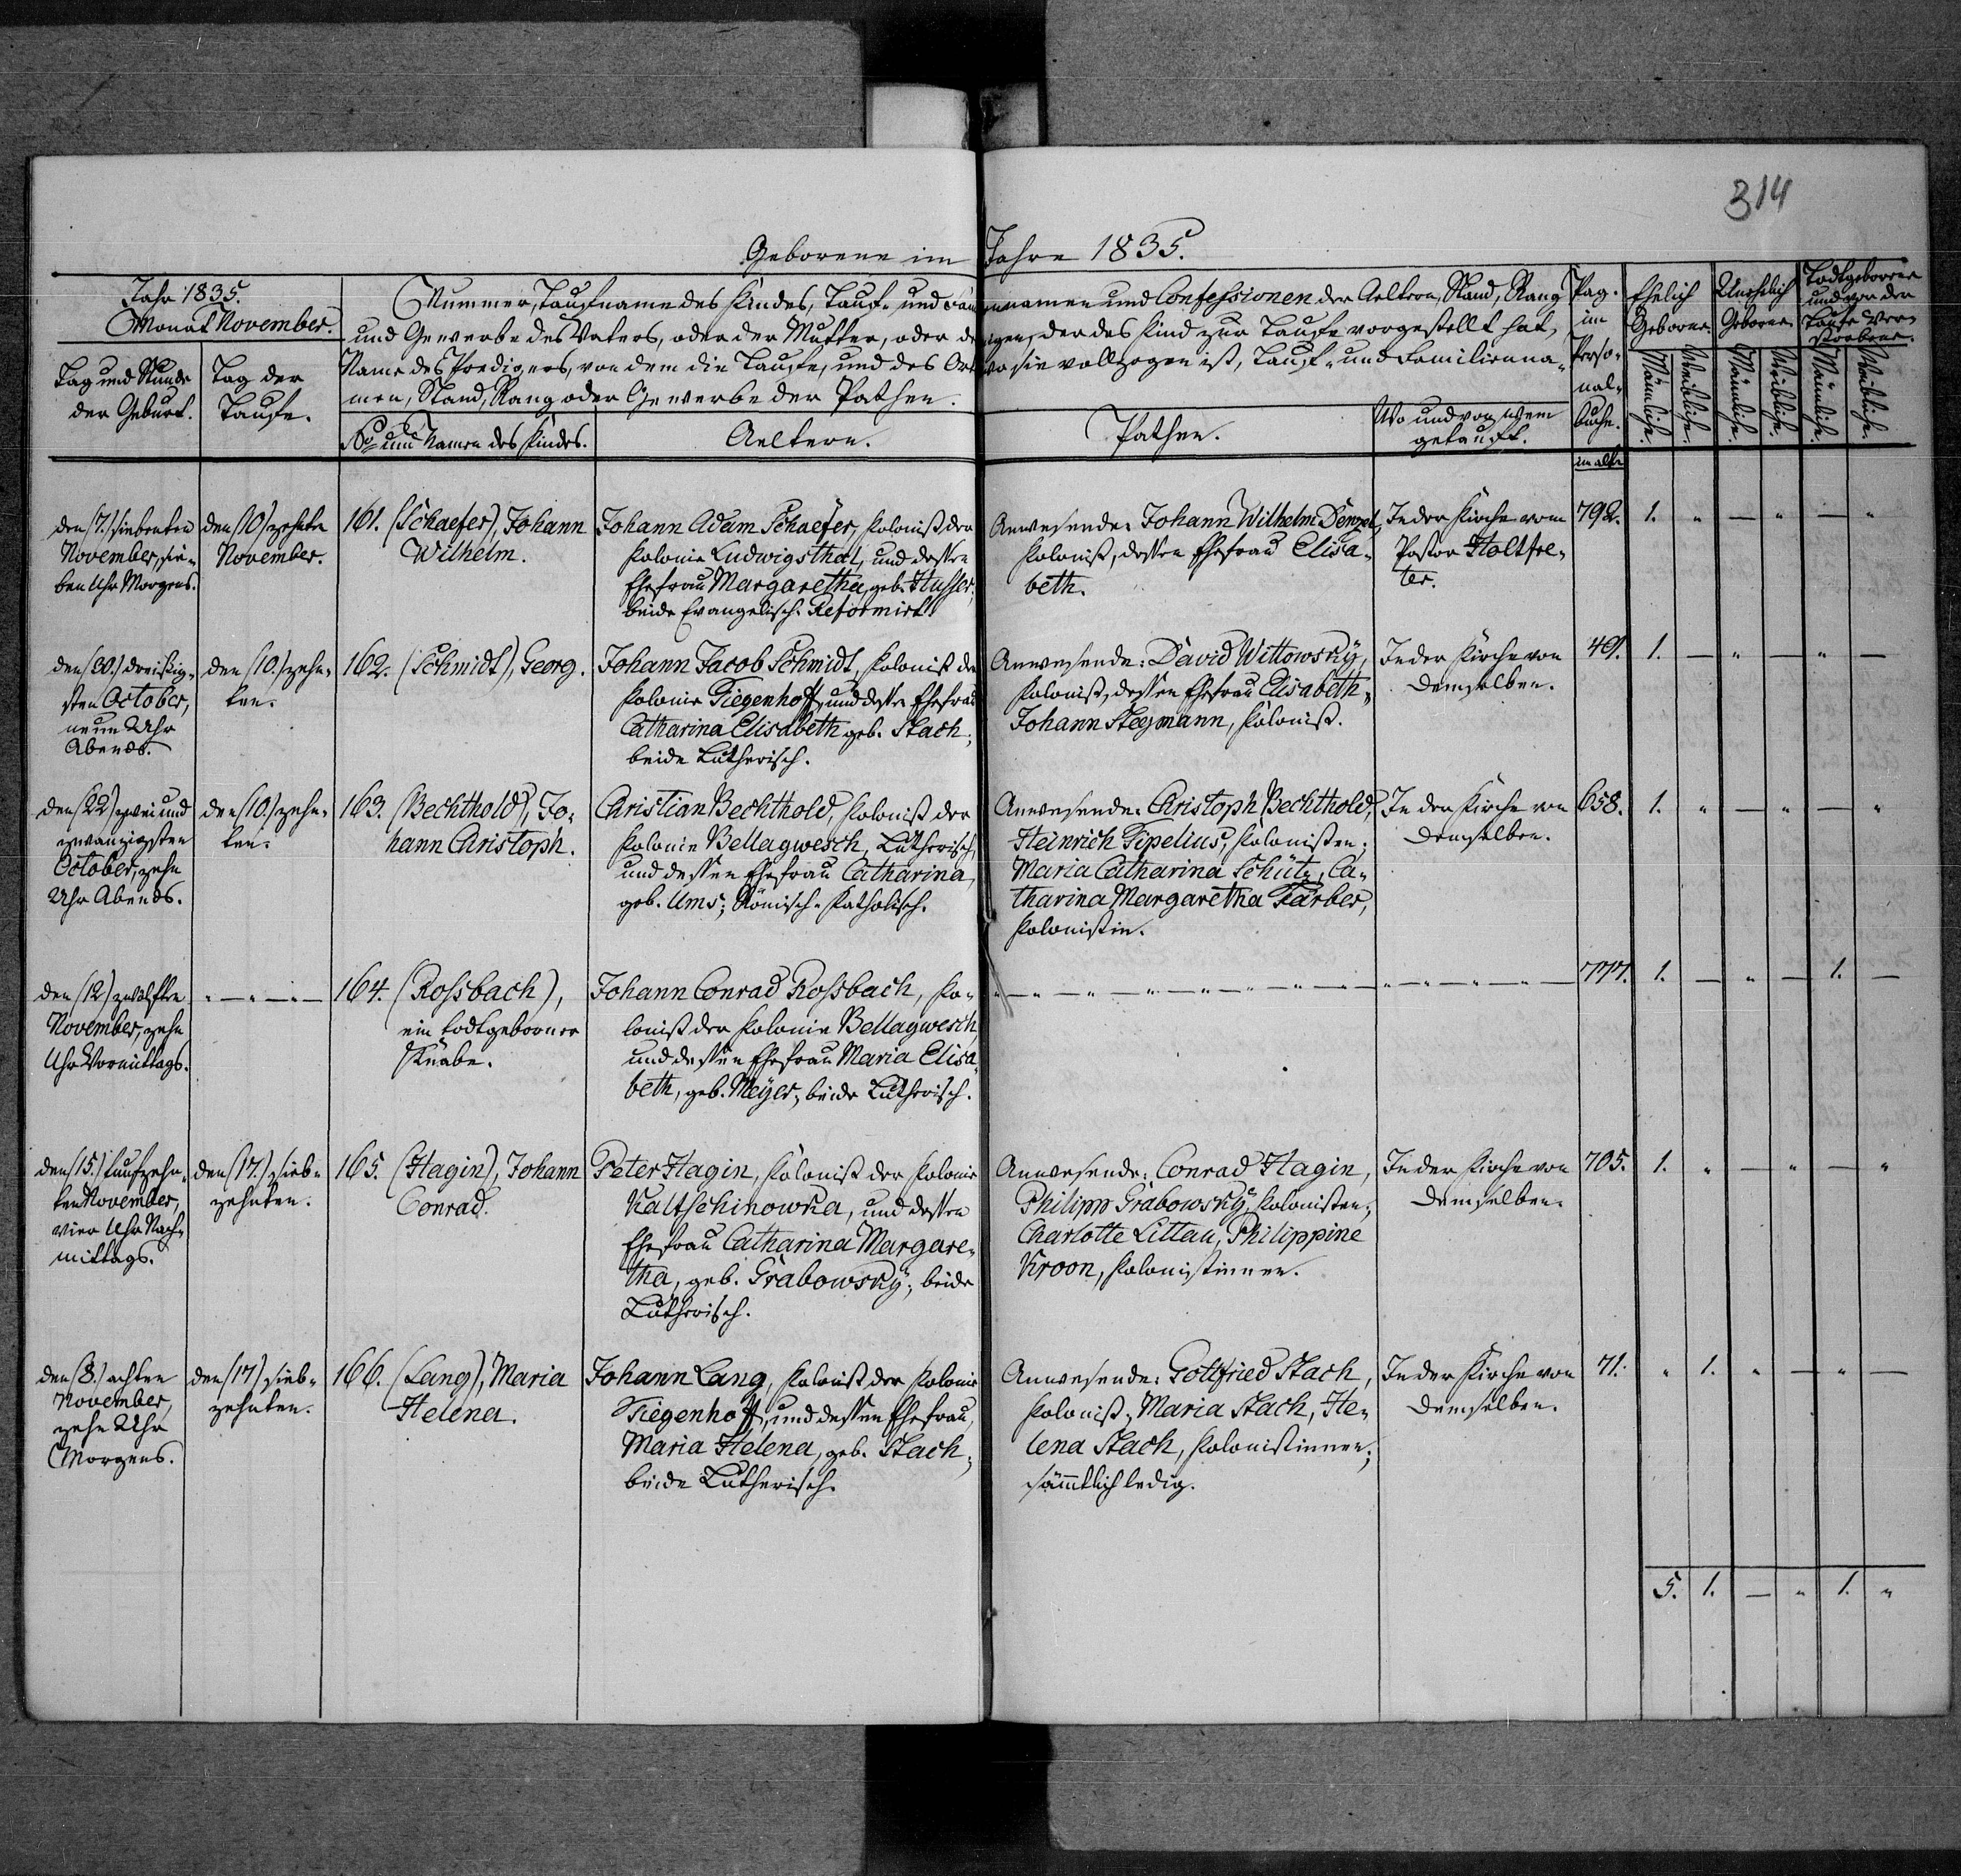 314
Geborene im Jahre 1835.
Jahr 1835.
Monat November.
Tag und Stunde
der Geburt.
Tag der
Taufe.
Nummer, Taufname des Kindes, Tauf- und Familiennamen und Confessionen der Aeltern, Stand, Rang
und Gewerbe des Vaters, oder der Mutter, oder desjenigen, der das Kind zur Taufe vorgestellt hat,
Name des Predigers, von dem die Taufe, und des Orts wo sie vollzogen ist, Tauf- und Familienna-
men, Stand, Rang oder Gewerbe der Pathen.
No und Namen des Kindes.
Aeltern.
Pathen.
Wo und von wem
getauft.
Pag.
im
Perso-
nal-
buche.
Ehelich
Geborene.
Unehelich
Geborene.
Todtgeborene
und vor der
Taufe Ver-
storbene.
Männliche.
Weibliche.
Männliche.
Weibliche.
Männliche.
Weibliche.
im alten
den (7.) siebenten
November, sie-
ben Uhr Morgens.
den (10) zehnten
November.
161. (Schaefer), Johann
Wilhelm.
Johann Adam Schaefer, Kolonist der
Kolonie Ludwigsthal, und dessen
Ehefrau Margaretha, geb. Husser;
beide Evangelisch-Reformirt.
Anwesende: Johann Wilhelm Denzel,
Kolonist, dessen Ehefrau Elisa-
beth.
In der Kirche vom
Pastor Holtfre-
ter.
792. 1. " — " — "
den (30.) dreißig-
sten October,
neun Uhr
Abends.
den (10.) zehn-
ten.
162. (Schmidt), Georg.
Johann Jacob Schmidt, Kolonist der
Kolonie Tiegenhoff, und dessen Ehefrau
Catharina Elisabeth geb. Stach;
beide Lutherisch.
Anwesende: David Wittowsky,
Kolonist, dessen Ehefrau Elisabeth,
Johann Stegmann, Kolonist.
In der Kirche von
demselben.
49. 1. — " — " —
den (22) zwei und
zwanzigsten
October, zehn
Uhr Abends.
den (10.) zehn-
ten.
163. (Bechthold), Jo-
hann Christoph.
Christian Bechthold, Kolonist der
Kolonie Bellagwesch, Lutherisch,
und dessen Ehefrau Catharina,
geb. Ums; Römisch-Katholisch.
Anwesende: Christoph Bechthold,
Heinrich Tipelius, Kolonisten;
Maria Catharina Schütz, Ca-
tharina Margaretha Färber,
Kolonistin.
In der Kirche von
demselben.
658. 1. " — " — "
den (12) zwölften
November, zehn
Uhr Vormittags.
" — " — " —
164. (Rossbach),
ein todtgeborner
Knabe.
Johann Conrad Rossbach, Ko-
lonist der Kolonie Bellagwesch,
und dessen Ehefrau Maria Elisa-
beth, geb. Meyer; beide Lutherisch.
777. 1. — " — 1. —
den (15.) fünfzehn-
ten November,
vier Uhr Nach-
mittags.
den (17.) sieb-
zehnten.
165. (Hagin), Johann
Conrad.
Peter Hagin, Kolonist der Kolonie
Kaltschinowka, und dessen
Ehefrau Catharina Margare-
tha, geb. Grabowsky; beide
Lutherisch.
Anwesende: Conrad Hagin,
Philipp Grabowsky, Kolonisten;
Charlotte Littau, Philippine
Kroon, Kolonistinnen.
In der Kirche von
demselben.
705. 1. " — " — "
den (8.) achten
November,
zehn Uhr
Morgens.
den (17) sieb-
zehnten.
166. (Lang), Maria
Helena.
Johann Lang, Kolonist der Kolonie
Tiegenhoff, und dessen Ehefrau,
Maria Helena, geb. Stach;
beide Lutherisch.
Anwesende: Gottfried Stach,
Kolonist, Maria Stach, He-
lena Stach, Kolonistinnen;
sämmtlich ledig.
In der Kirche von
demselben.
71. " 1. " — " —
5. 1. — " 1. "